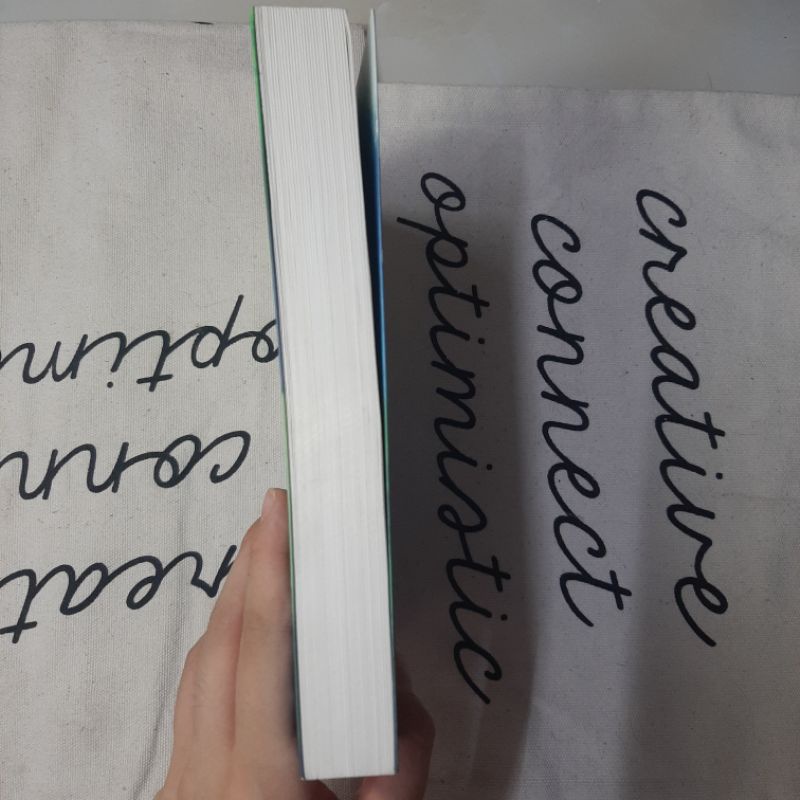 creative
connect
optimistic
reat
conn
optim